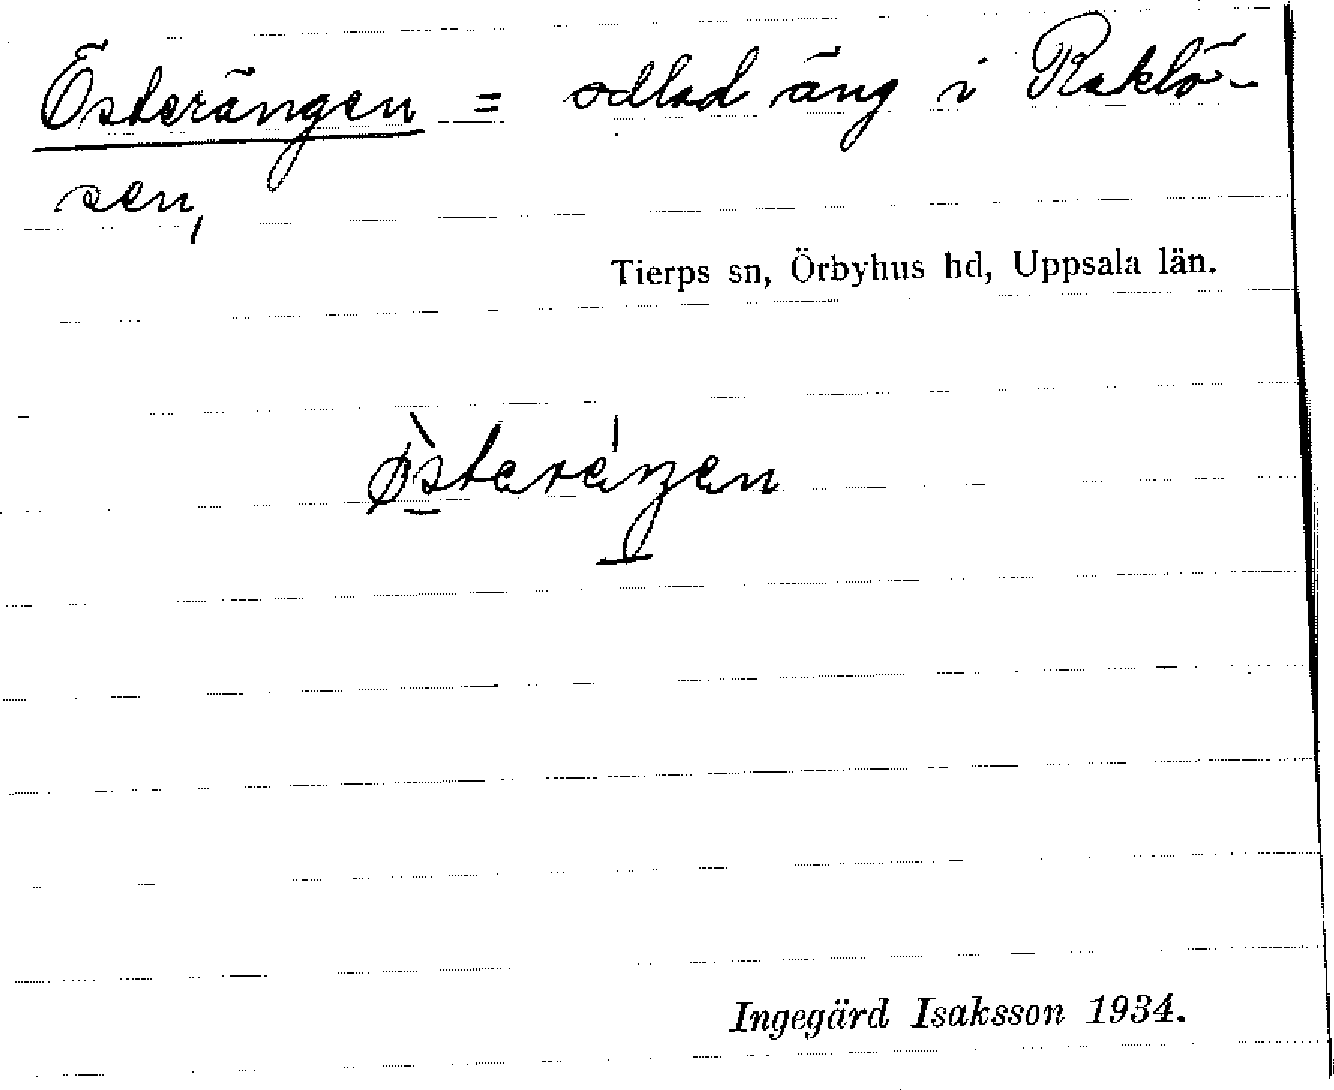 Österängen = odlad äng i Raklö-
sen,
Tierps sn, Örbyhus hd, Uppsala län.
ø̀steréŋen
Ingegärd Isaksson 1934.